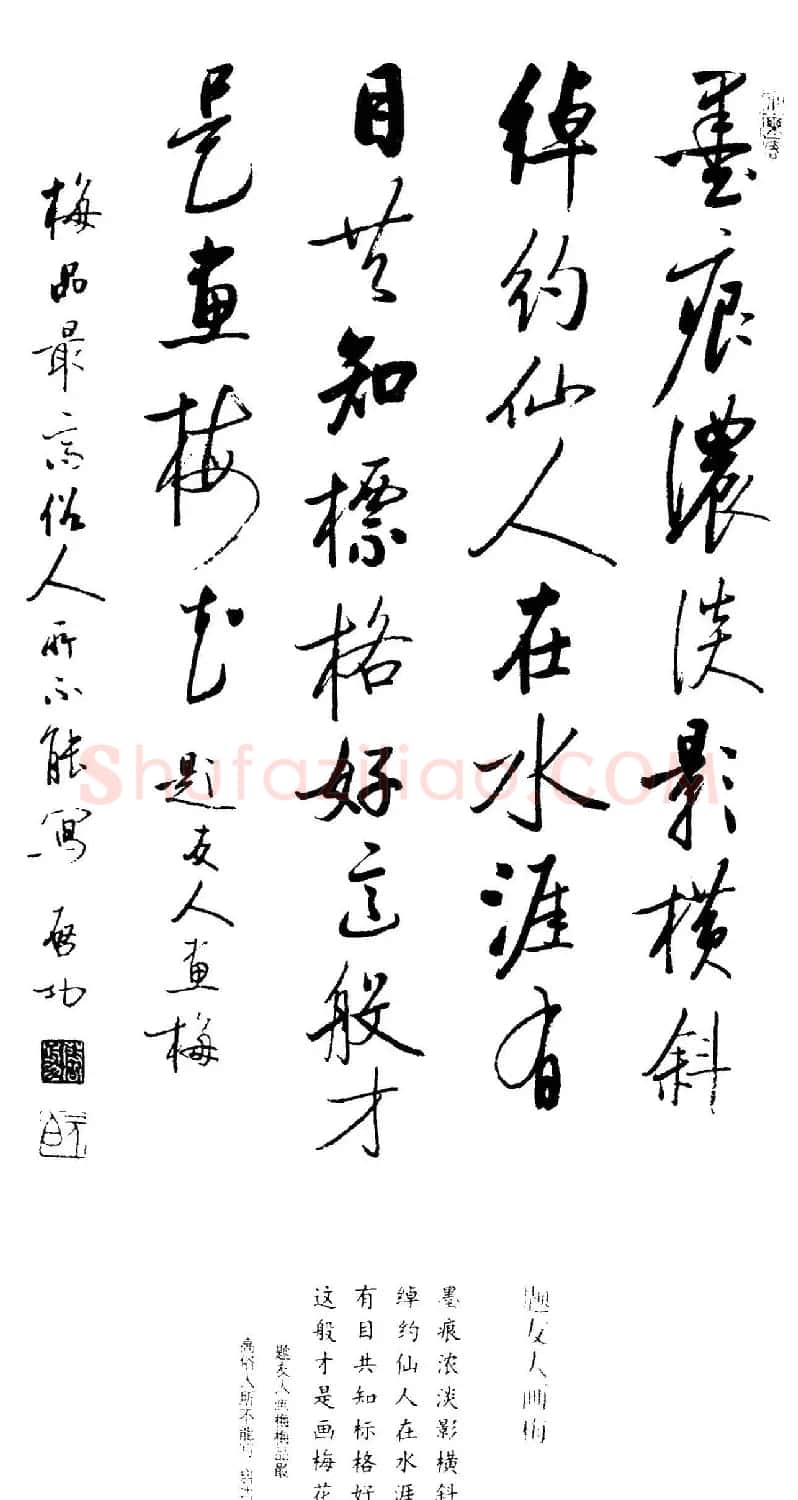 墨痕濃淡影横斜
綽約仙人在水涯有
目共知標格好這般才
是畫梅花 題友人畫梅
梅品最高俗人所不能寫 啓功
Shufaziliao.COM
题友人画梅
墨痕浓淡影横斜
绰约仙人在水涯
有目共知标格好
这般才是画梅花
题友人画梅梅品最
高俗人所不能写